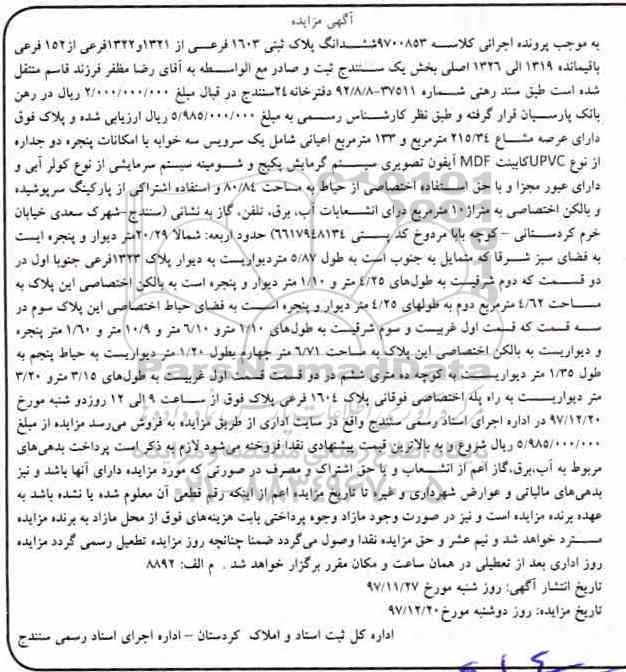 آگهی مزایده
به موجب پرونده اجرائی کلاسه ۹۷۰۰۸۵۳ششدانگ پلاک ثبتی ۱۶۰۳ فرعی از ۱۳۲۱و۱۳۲۲فرعی از۱۵۲ فرعی
باقیمانده ۱۳۱۹ الی ۱۳۲۶ اصلی بخش یک سنندج ثبت و صادر مع الواسطه به آقای رضا مظفر فرزند قاسم منتقل
شده است طبق سند رهنی شماره ۳۷۵۱۱-۹۲/۸/۸ دفترخانه ۲۴سنندج در قبال مبلغ ۲/۰۰۰/۰۰۰/۰۰۰ ریال در رهن
بانک پارسیان قرار گرفته و طبق نظر کارشناس رسمی به مبلغ ۵/۹۸۵/۰۰۰/۰۰۰ ریال ارزیابی شده و پلاک فوق
دارای عرصه مشاع ۲۱۵/۳۴ مترمربع و ۱۳۳ مترمربع اعیانی شامل یک سرویس سه خوابه با امکانات پنجره دو جداره
از نوع UPVCکابینت MDF آیفون تصویری سیستم گرمایش پکیج و شومینه سیستم سرمایشی از نوع کولر آبی و
دارای عبور مجزا و با حق استفاده اختصاصی از حیاط به مساحت ۸۰/۸۴ و استفاده اشتراکی از پارکینگ سرپوشیده
و بالکن اختصاصی به متراژ۱۰ مترمربع درای انشعابات آب، برق، تلفن، گاز به نشانی (سنندج-شهرک سعدی خیابان
خرم کردستانی – کوچه بابا مردوخ کد پستی ۶۶۱۷۹۴۸۱۳۴) حدود اربعه: شمالا ۲۰/۲۹متر دیوار و پنجره ایست
به فضای سبز شرقا که متمایل به جنوب است به طول ۵/۸۷ متردیواریست به دیوار پلاک ۱۳۲۳فرعی جنوبا اول در
دو قسمت که دوم شرقیست به طول‌های ۴/۲۵ متر و ۱/۱۰ متر دیوار و پنجره است به بالکن اختصاصی این پلاک به
مساحت ۴/۶۲ مترمربع دوم به طولهای ۴/۲۵ متر دیوار و پنجره است به فضای حیاط اختصاصی این پلاک سوم در
سه قسمت که قسمت اول غربیست و سوم شرقیست به طول‌های ۱/۱۰ مترو ۶/۱۰ متر و ۱۰/۹ متر و ۱/۶۰ متر پنجره
و دیواریست به بالکن اختصاصی این پلاک به مساحت ۶/۷۱ متر چهارم بطول ۱/۲۰ متر دیواریست به حیاط پنجم به
طول ۱/۳۵ متر دیواریست به کوچه ده متری ششم در دو قسمت قسمت اول غربیست به طول‌های ۳/۱۵ مترو ۳/۲۰
متر دیواریست به راه پله اختصاصی فوقانی پلاک ۱۶۰۴ فرعی پلاک فوق از ساعت ۹ الی ۱۲ روزدو شنبه مورخ
۹۷/۱۲/۲۰ در اداره اجرای اسناد رسمی سنندج واقع در سایت اداری از طریق مزایده به فروش می‌رسد مزایده از مبلغ
۵/۹۸۵/۰۰۰/۰۰۰ ریال شروع و به بالاترین قیمت پیشنهادی نقدا فروخته می‌شود لازم به ذکر است پرداخت بدهی‌های
مربوط به آب،برق،گاز اعم از انشعاب و یا حق اشتراک و مصرف در صورتی که مورد مزایده دارای آنها باشد و نیز
بدهی‌های مالیاتی و عوارض شهرداری و غیره تا تاریخ مزایده اعم از اینکه رقم قطعی آن معلوم شده یا نشده باشد به
عهده برنده مزایده است و نیز در صورت وجود مازاد وجوه پرداختی بابت هزینه‌های فوق از محل مازاد به برنده مزایده
مسترد خواهد شد و نیم عشر و حق مزایده نقدا وصول می‌گردد ضمنا چنانچه روز مزایده تطعیل رسمی گردد مزایده
روز اداری بعد از تعطیلی در همان ساعت و مکان مقرر برگزار خواهد شد . م الف: ۸۸۹۲
تاریخ انتشار آگهی: روز شنبه مورخ ۹۷/۱۱/۲۷
تاریخ مزایده: روز دوشنبه مورخ ۹۷/۱۲/۲۰
اداره کل ثبت اسناد و املاک کردستان – اداره اجرای اسناد رسمی سنندج
ParsNamadData
۰۲۱-۸۸۳۴۹۶۷۰-۵